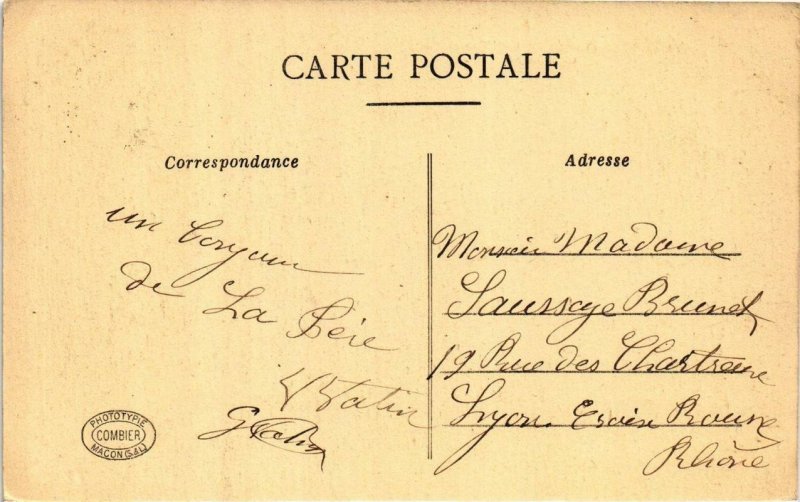 CARTE POSTALE
Correspondance
Adresse
un
de La
Monsieur Madame
Saussaye Brunet
19 Rue des Chartreux
Lyon. Croix Rousse
Rhône
PHOTOTYPIE
COMBIER
MACON (S.&L.)